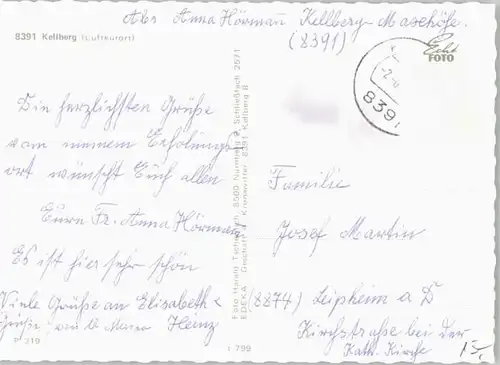 Abs. Anna Hörmann Kellberg - Masehöfe.
(8391)
8391 Kellberg (Luftkurort)
Echt
FOTO
8391
Die herzlichsten Grüße
vom meinem Erholungs
ort wünscht Euch allen
Eure Fr. Anna Hörmann
Es ist hier sehr schön
Viele Grüße an Elisabeth
Heinz
P 319
Foto Harald 8500 Nürnberg 2, Schließfach 2571
EDEKA Geschäft Kronawitter 8391 Kellberg 8
I 799
Familie
Josef Martin
(8874) Leipheim a D
Kirchstraße bei der
Kath. Kirche